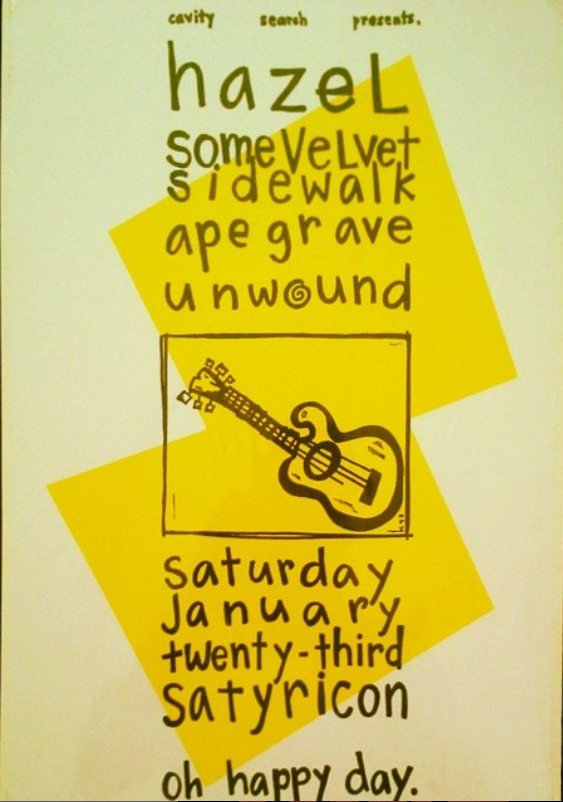 cavity search presents.
hazeL
someVeLvet
sidewalk
ape grave
unwound
saturday
January
twenty-third
satyricon
oh happy day.